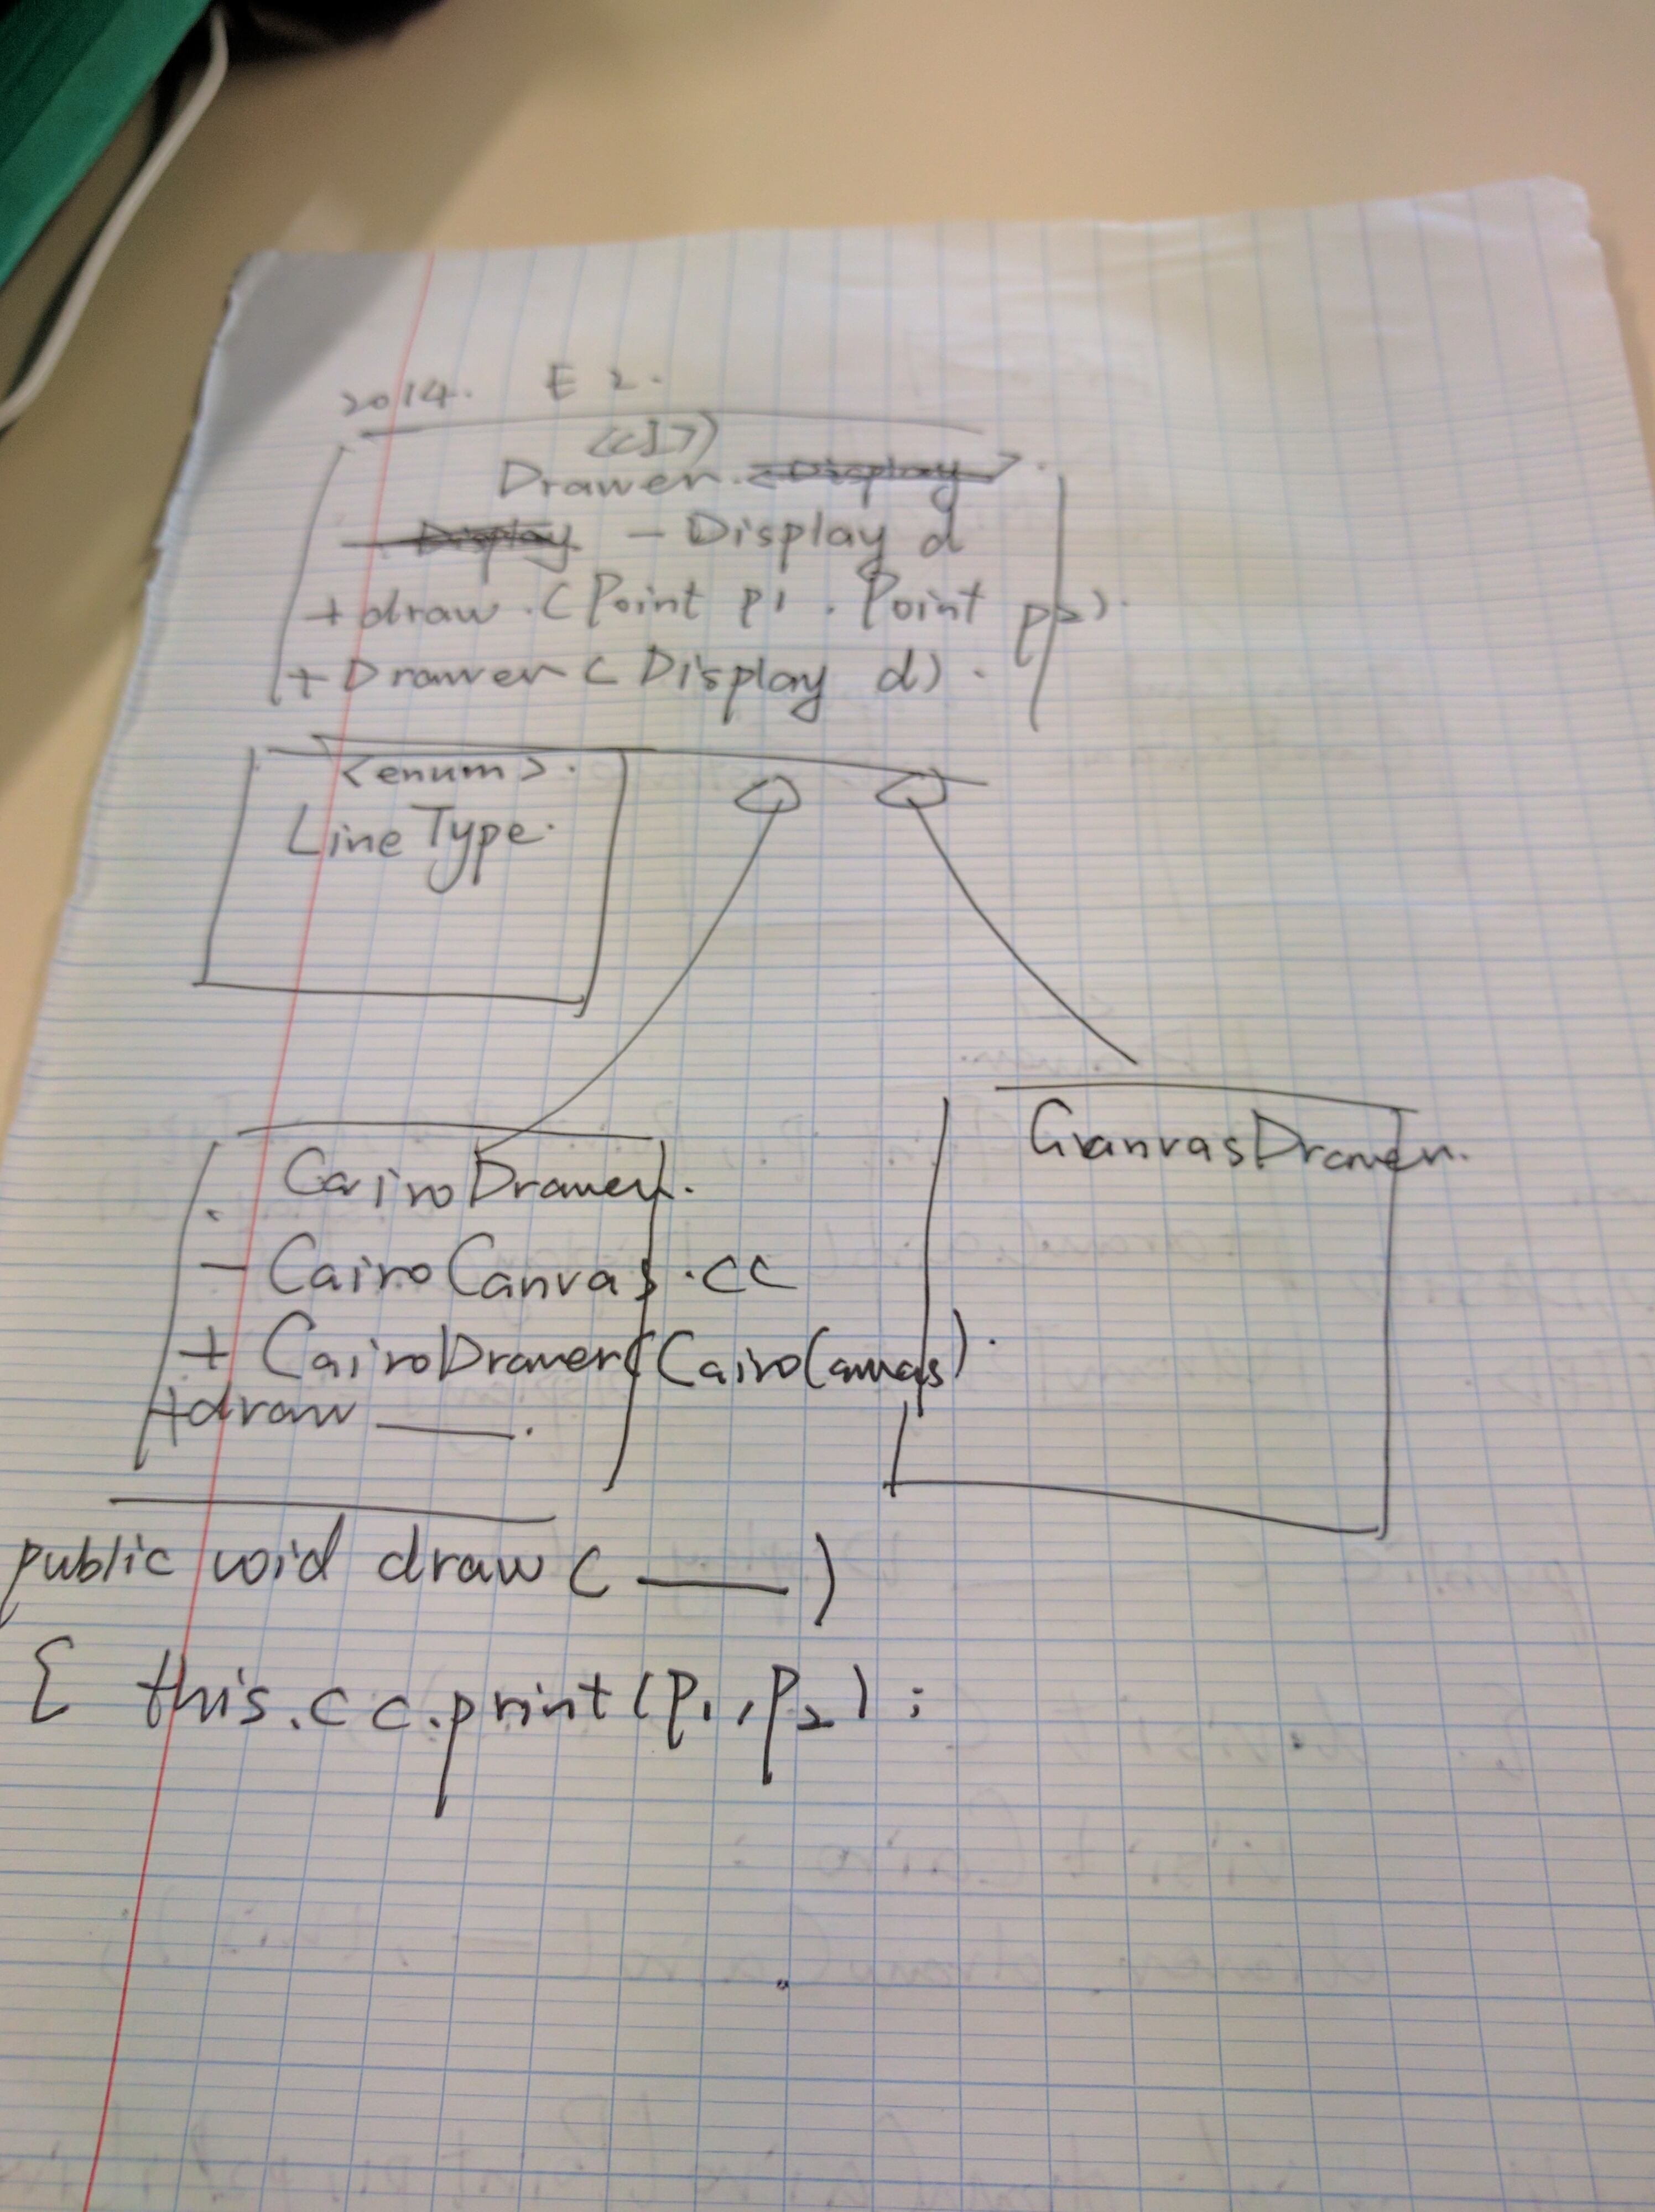 2014. E 2.
<<I>>
Drawer.
- Display d
+ draw.(Point p1 . Point p2).
+ Drawer ( Display d) .
<enum>.
LineType.
CairoDrawer.
- CairoCanvas.cc
+ CairoDrawer(CairoCanvas).
+draw ____.
GanvasDrawer.
public void draw ( ____ )
{ this.cc.print(p1,p2);